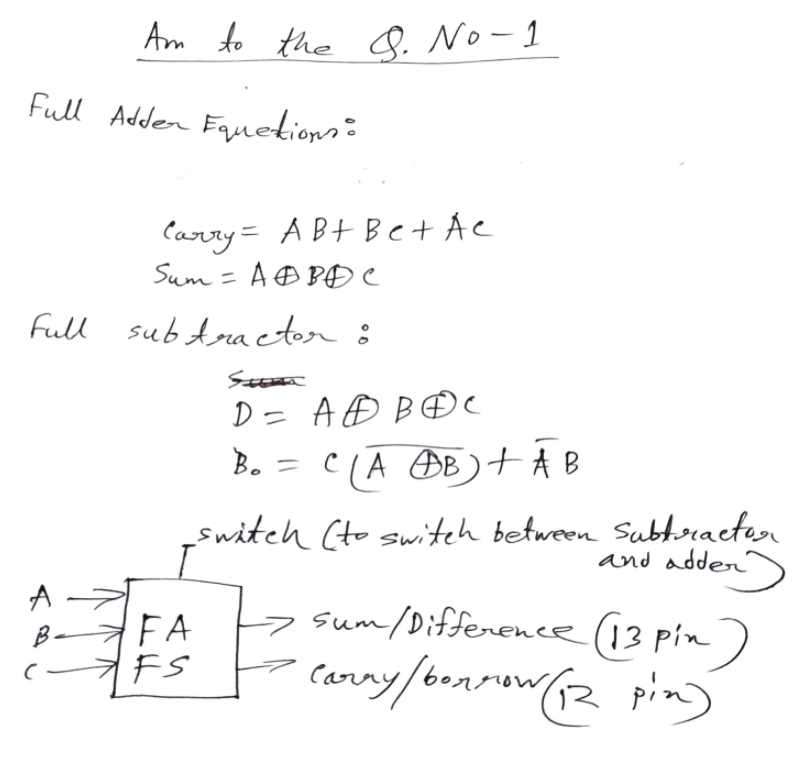 Am to the Q. No-1
Full Adder Equetions:
Carry = AB + BC + AC
Sum = A ⊕ B ⊕ C
Full subtractor :
D = A ⊕ B ⊕ C
B₀ = C(\overline{A ⊕ B}) + \overline{A} B
switch (to switch between subtractor
and adder)
A
B
C
FA
FS
sum/Difference (13 pin)
carry/borrow (12 pin)